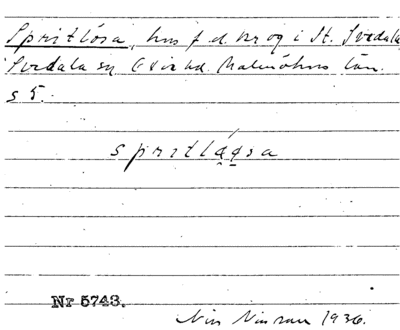 Spritlósa, hus f.d. krog i St. Svedala
Svedala sn Oxie hd. Malmöhus län.
s 5.
spritlą́ǫsa
Nr 5743.
Nils Nilsson 1936.